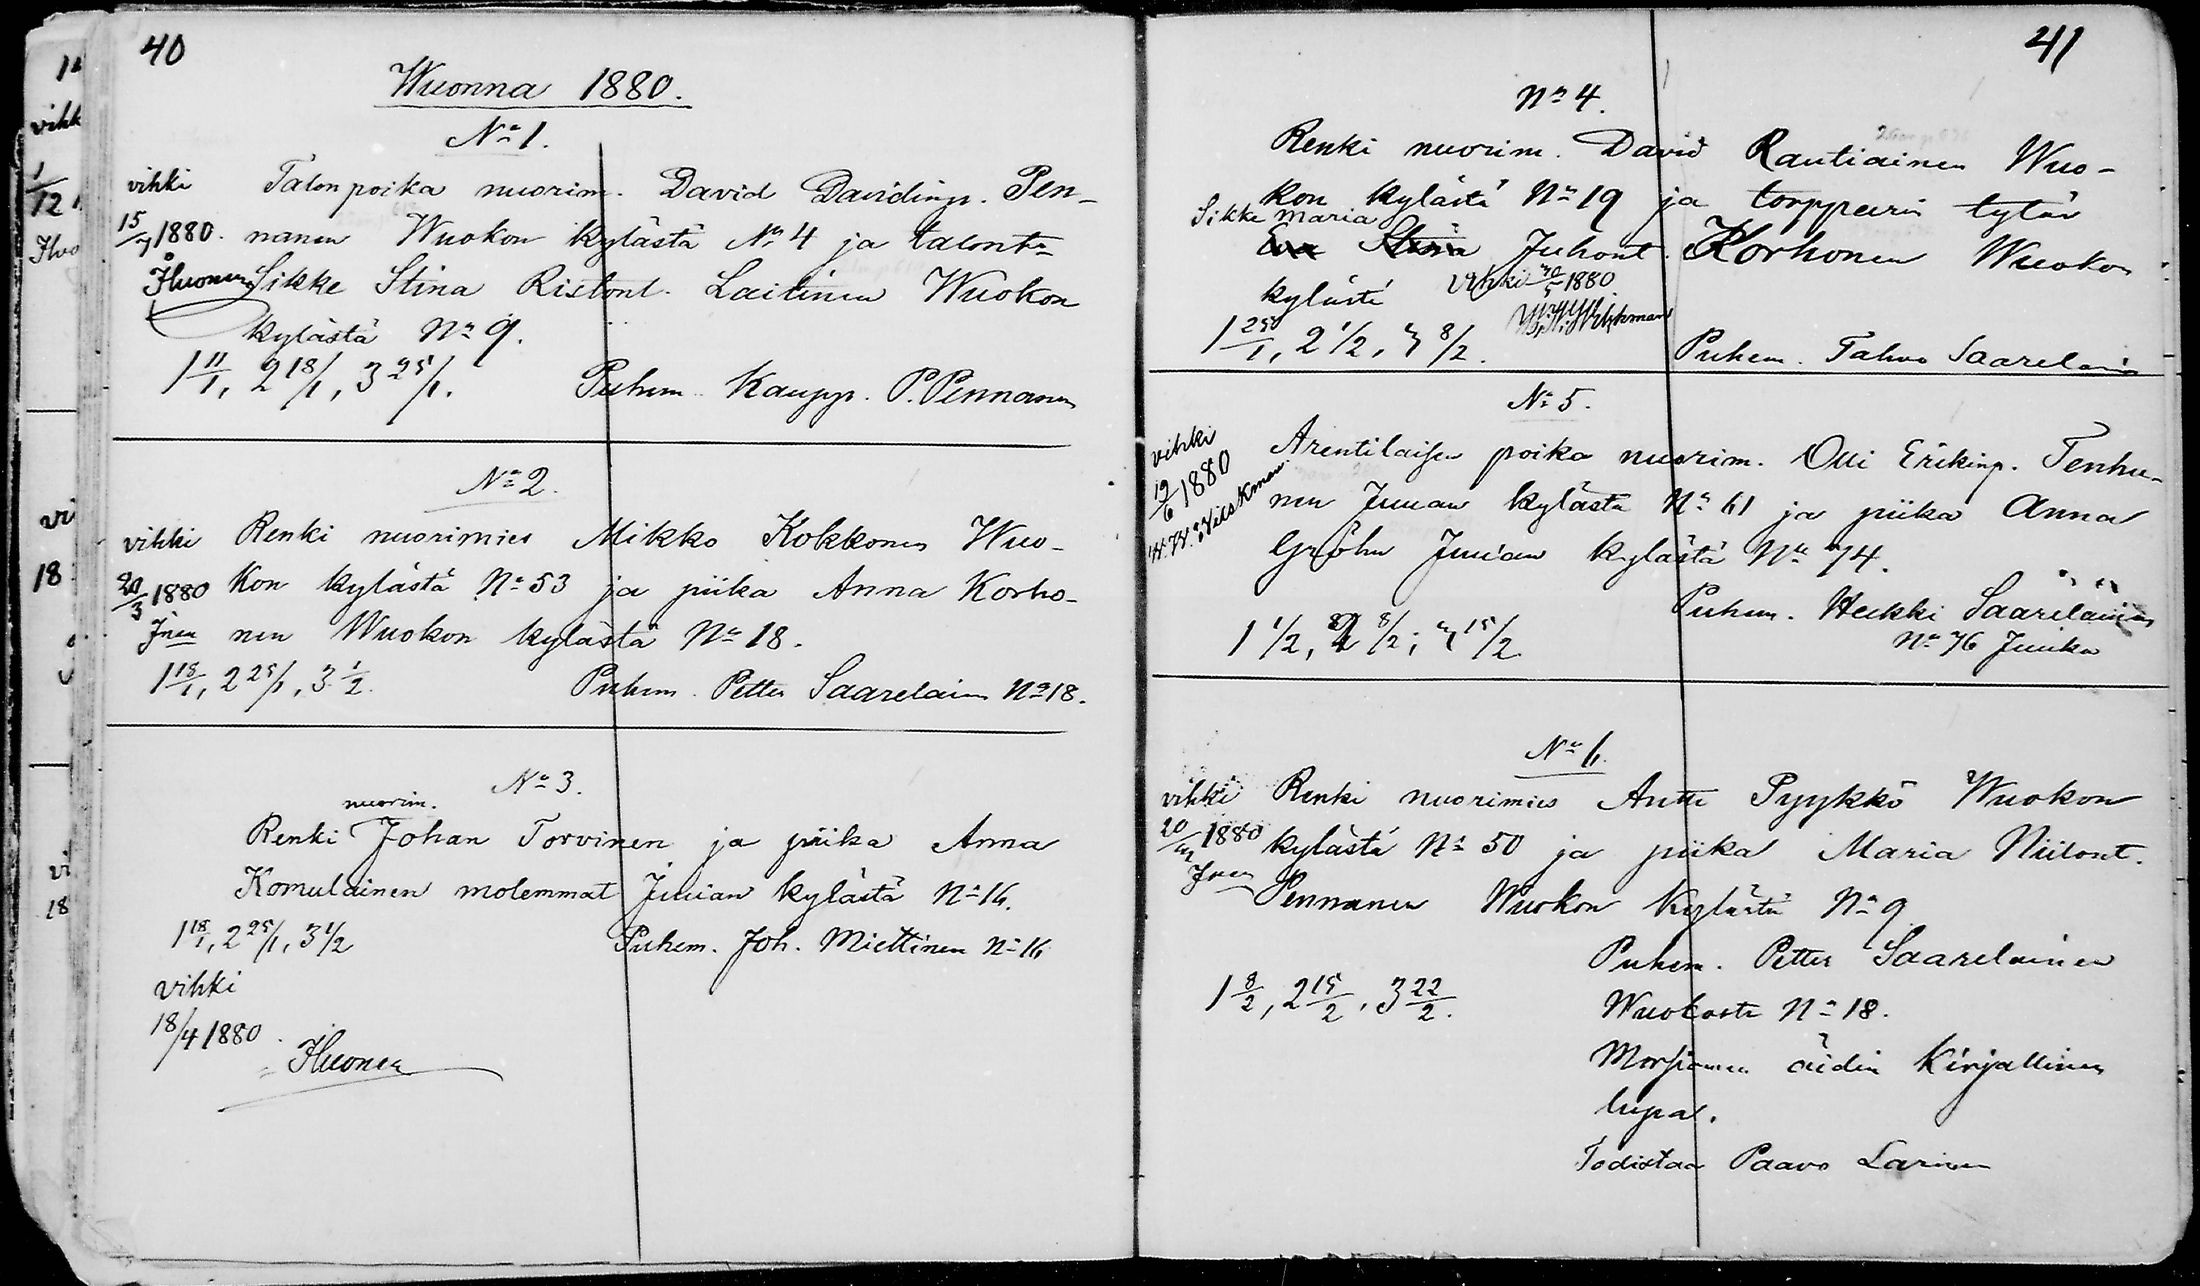 40
Wuonna 1880.
No 1.
vihki Talonpoika nuorim. David Davidinp. Pen-
15/7 1880. nanen Wuokon kylästä No 4 ja talont:
Sikke Stina Ristont. Laitinen Wuokon
kylästä No 9.
1 11/1, 2 18/1, 3 25/1. Puhem. Kaupp. P. Pennanen
No 2.
vihki Renki nuorimies Mikko Kokkonen Wuo-
20/3 1880 kon kylästä No 53 ja piika Anna Korho-
nen Wuokon kylästä No 18.
1 18/1, 2 25/1, 3 1/2. Puhem. Petter Saarelainen No 18.
No 3.
nuorim.
Renki Johan Torvinen ja piika Anna
Komulainen molemmat Juuan kylästä No 16.
1 18/1, 2 25/1, 3 1/2 Puhem. Joh. Miettinen No 16
vihki
18/4 1880.
41
No 4.
Renki nuorim. David Rautiainen Wuo-
kon kylästä No 19 ja torpparin tytär
Sikke Maria
Eva Stina Juhont. Korhonen Wuokon
kylästä vihki 30/5 1880
1 25/1, 2 1/2, 3 8/2. Puhem. Tahvo Saarelain
No 5.
vihki Arentilaisen poika nuorim. Olli Erikinp. Tenhu-
19/6 1880 nen Juuan kylästä No 61 ja piika Anna
Gröhn Juuan kylästä No 74.
Puhem. Heikki Saarelainen
1 1/2, 2 8/2, 3 15/2 No 76 Juuka
No 6.
vihki Renki nuorimies Antti Pyykkö Wuokon
20/3 1880 kylästä No 50 ja piika Maria Niilont.
Pennanen Wuokon kylästä No 9
Puhem. Petter Saarelainen
1 8/2, 2 15/2, 3 22/2. Wuokosta No 18.
Morsiamen äidin kirjallinen
lupa.
Todistaa Paavo Larinen